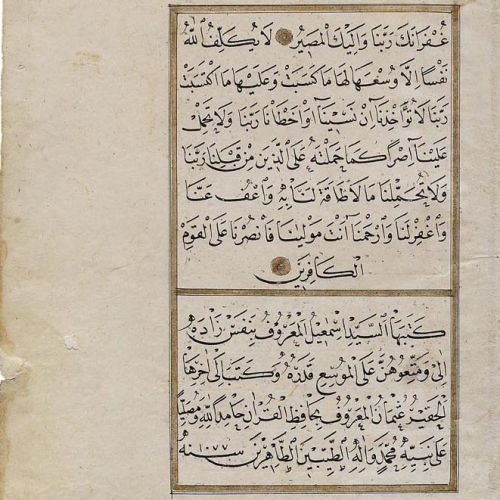 غُفْرَانَكَ رَبَّنَا وَإِلَيْكَ الْمَصِيرُ لَا يُكَلِّفُ اللّٰهُ
نَفْسًا اِلَّا وُسْعَهَا لَهَا مَا كَسَبَتْ وَعَلَيْهَا مَا اكْتَسَبَتْ
رَبَّنَا لَا تُؤَاخِذْنَا اِنْ نَسِينَا اَوْ اَخْطَأْنَا رَبَّنَا وَلَا تَحْمِلْ
عَلَيْنَا اِصْرًا كَمَا حَمَلْتَهُ عَلَى الَّذِينَ مِنْ قَبْلِنَا رَبَّنَا
وَلَا تُحَمِّلْنَا مَا لَا طَاقَةَ لَنَا بِهِ وَاعْفُ عَنَّا
وَاغْفِرْ لَنَا وَارْحَمْنَا اَنْتَ مَوْلٰينَا فَانْصُرْنَا عَلَى الْقَوْمِ
الْكَافِرِينَ
كَتَبَهَا السَّيِّدُ اِسْمٰعِيلُ الْمَعْرُوفُ بِنَفَسْ زَادَه
اِلَى وَمَتِّعُوهُنَّ عَلَى الْمُوسِعِ قَدَرُهُ وَكَتَبَ اِلَى اٰخِرِهَا
الْحَقِيرُ عُثْمَانُ الْمَعْرُوفُ بِحَافِظِ الْقُرْاٰنِ حَامِدًا لِلّٰهِ وَمُصَلِّيًا
عَلَى نَبِيِّهِ مُحَمَّدٍ وَاٰلِهِ الطَّيِّبِينَ الطَّاهِرِينَ سنه ١٠٧٧